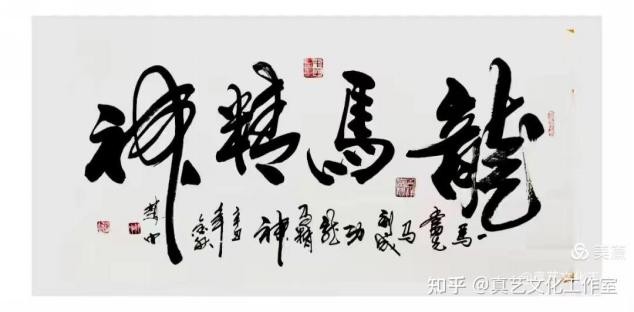 龍馬精神
一馬當先馬到成功龍馬精神
辛丑年
美篇
知乎 @真艺文化工作室